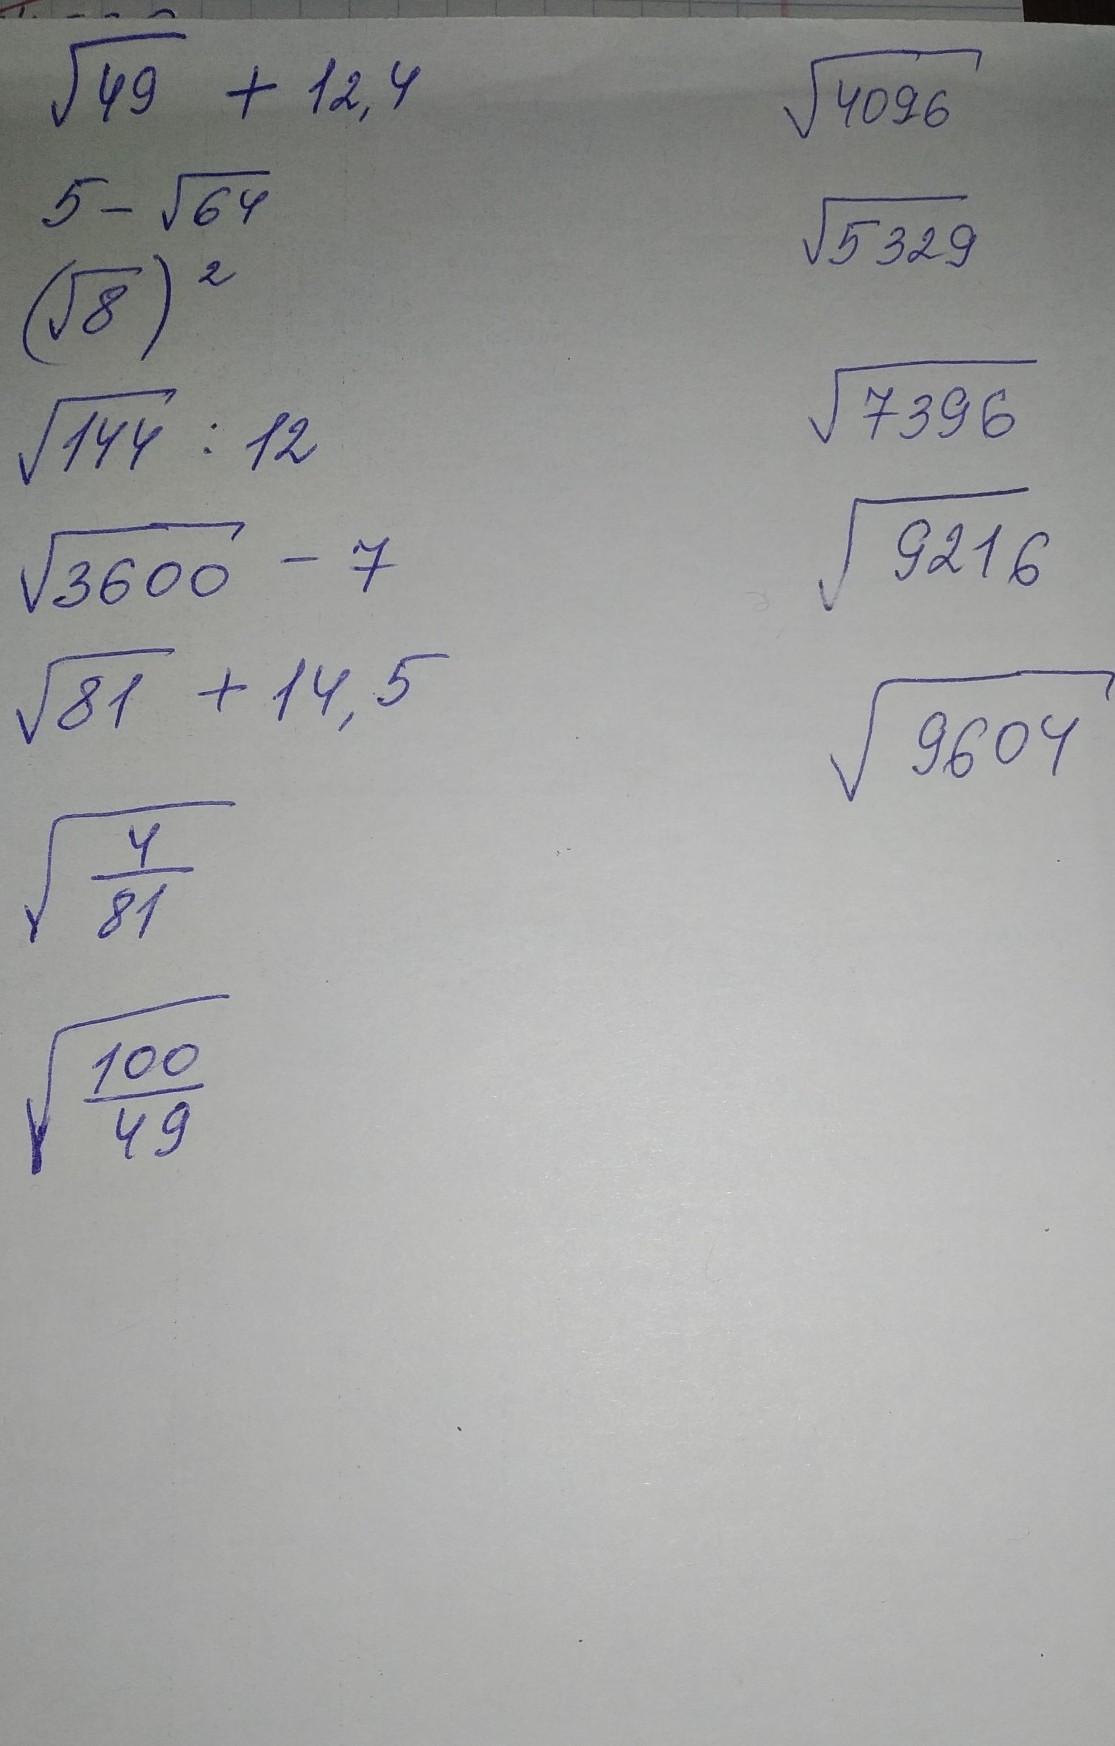 √49 + 12,4
5 - √64
(√8)²
√144 : 12
√3600 - 7
√81 + 14,5
√(4/81)
√(100/49)
√4096
√5329
√7396
√9216
√9604